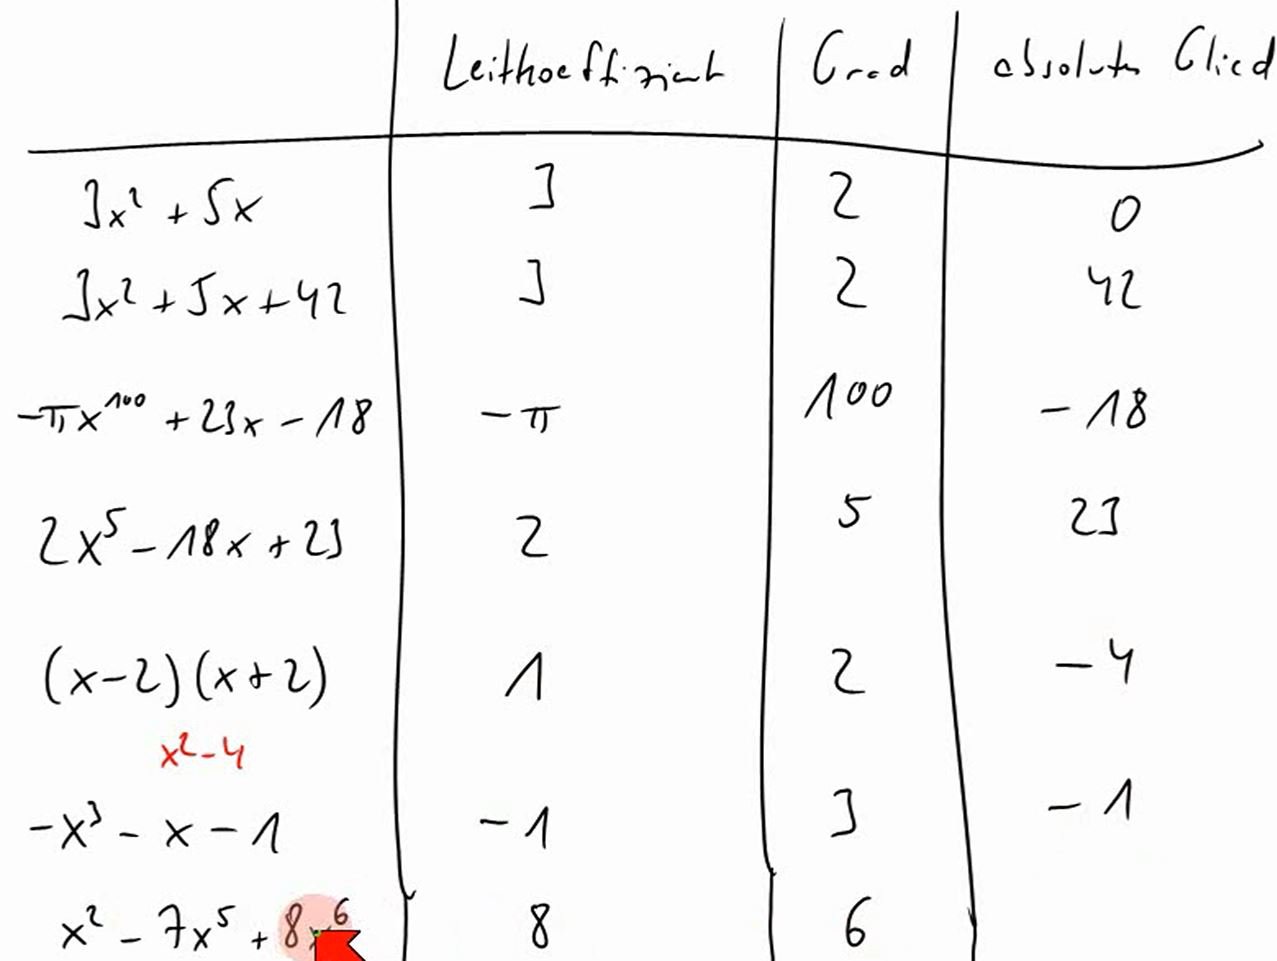 Leitkoeffizient Grad absolutes Glied
3x² + 5x 3 2 0
3x² + 5x + 42 3 2 42
-πx¹⁰⁰ + 23x - 18 -π 100 -18
2x⁵ - 18x + 23 2 5 23
(x-2)(x+2) 1 2 -4
x² - 4
-x³ - x - 1 -1 3 -1
x² - 7x⁵ + 8x⁶ 8 6